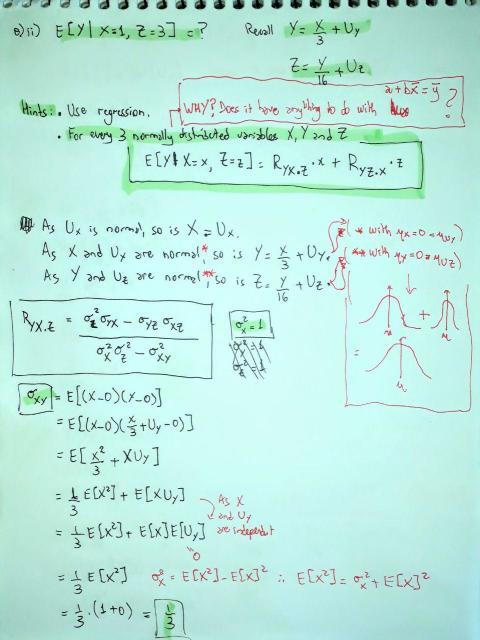 e) ii) E[Y | X=1, Z=3] = ? Recall Y = X/3 + U_Y
Z = Y/16 + U_Z
a + bx̄ = ȳ ?
Hints: • Use regression. WHY? Does it have anything to do with
• For every 3 normally distributed variables X, Y and Z
E[Y | X=x, Z=z] = R_YX·Z · x + R_YZ·X · z
As U_X is normal, so is X = U_X.
As X and U_X are normal*, so is Y = X/3 + U_Y. (* with μ_X = 0 = μ_UY)
As Y and U_Z are normal**, so is Z = Y/16 + U_Z. (** with μ_Y = 0 = μ_UZ)
R_YX·Z = (σ_Z² σ_YX − σ_YZ σ_XZ) / (σ_X² σ_Z² − σ_XY²)
σ_X² = 1
μ + μ
= μ
σ_XY = E[(X−0)(Y−0)]
= E[(X−0)(X/3 + U_Y − 0)]
= E[X²/3 + XU_Y]
= 1/3 E[X²] + E[XU_Y] As X
and U_Y
= 1/3 E[X²] + E[X]E[U_Y] are independent
"0
= 1/3 E[X²] σ_X² = E[X²] − E[X]² ∴ E[X²] = σ_X² + E[X]²
= 1/3 · (1+0) = 1/3